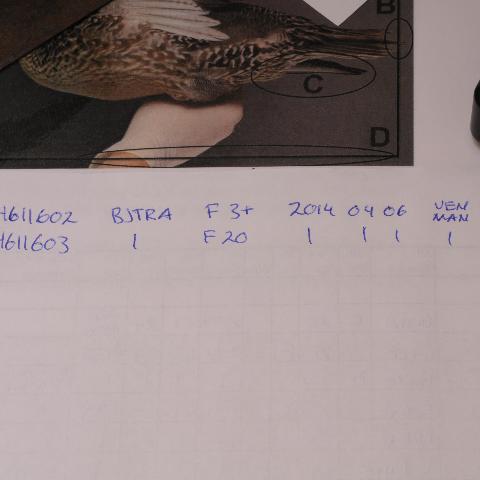 B
C
D
H611602 BJTRA F 3+ 2014 04 06 VEN MAN
H611603 | F 20 | | | |